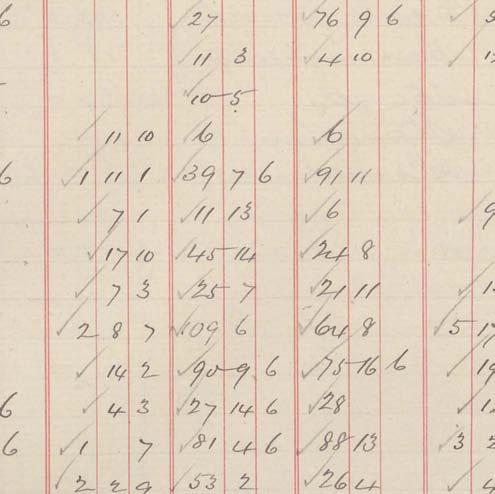 6 27 76 9 6
11 3 4 10
10 5
11 10 6 6
6 1 11 1 39 7 6 91 11
7 1 11 13 6 9
17 10 45 14 24 8
7 3 25 7 21 11 1
2 8 7 109 6 64 8 5 17
14 2 90 9 6 75 16 6 19
6 4 3 27 14 6 28 1
6 1 7 81 4 6 88 13 3 2
2 2 9 53 2 26 4 4